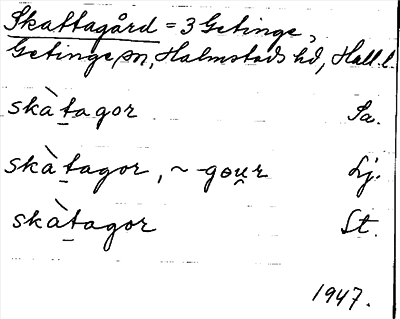 Skattagård = 3 Getinge,
Getinge sn, Halmstads hd, Hall. l.
skàt̠agor Sa.
skàt̠agor, ~ -gou̯r Lj.
skàt̠agor St.
1947.